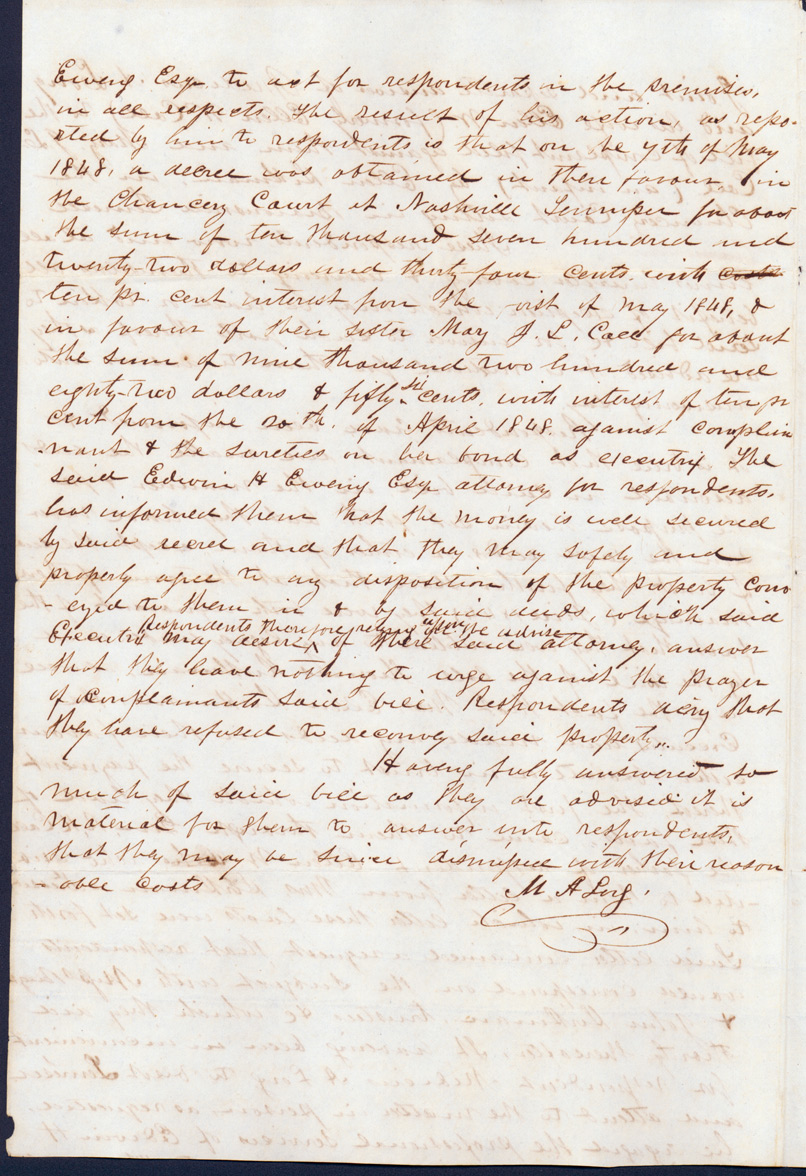 Ewing Esqr. to act for respondents in the premises,
in all respects. The result of his action, as repo-
rted by him to respondents is that on he 4th of May
1848, a decree was obtained in their favour in
the Chancery Court at Nashville Tennessee for about
the sum of ten thousand seven hundred and
twenty-two dollars and thirty-four cents. with costs
ten pr. cent interest from the first of May 1848, &
in favour of their sister May J. L. Call for about
the sum of nine thousand two hundred and
eighty-two dollars & fifty-six cents. with interest of ten pr
cent from the 20th. of April 1848. against complain
-nant & the sureties on her bond as executrix. The
said Edwin H Ewing Esqr attorney for respondents,
has informed them that the money is well secured
by said decree and that they may safely and
properly agree to any disposition of the property conv
-eyed to them in & by said deeds, which said
respondents therefore upon the advise
Executrix may desire, of their said attorney, answer
that they have nothing to urge against the prayer
of complainants said bill. Respondents deny that
they have refused to reconvey said property,..
Having fully answered so
much of said bill as they are advised it is
material for them to answer unto respondents,
that they may be hence dismissed with their reason
-able costs
M A Long.